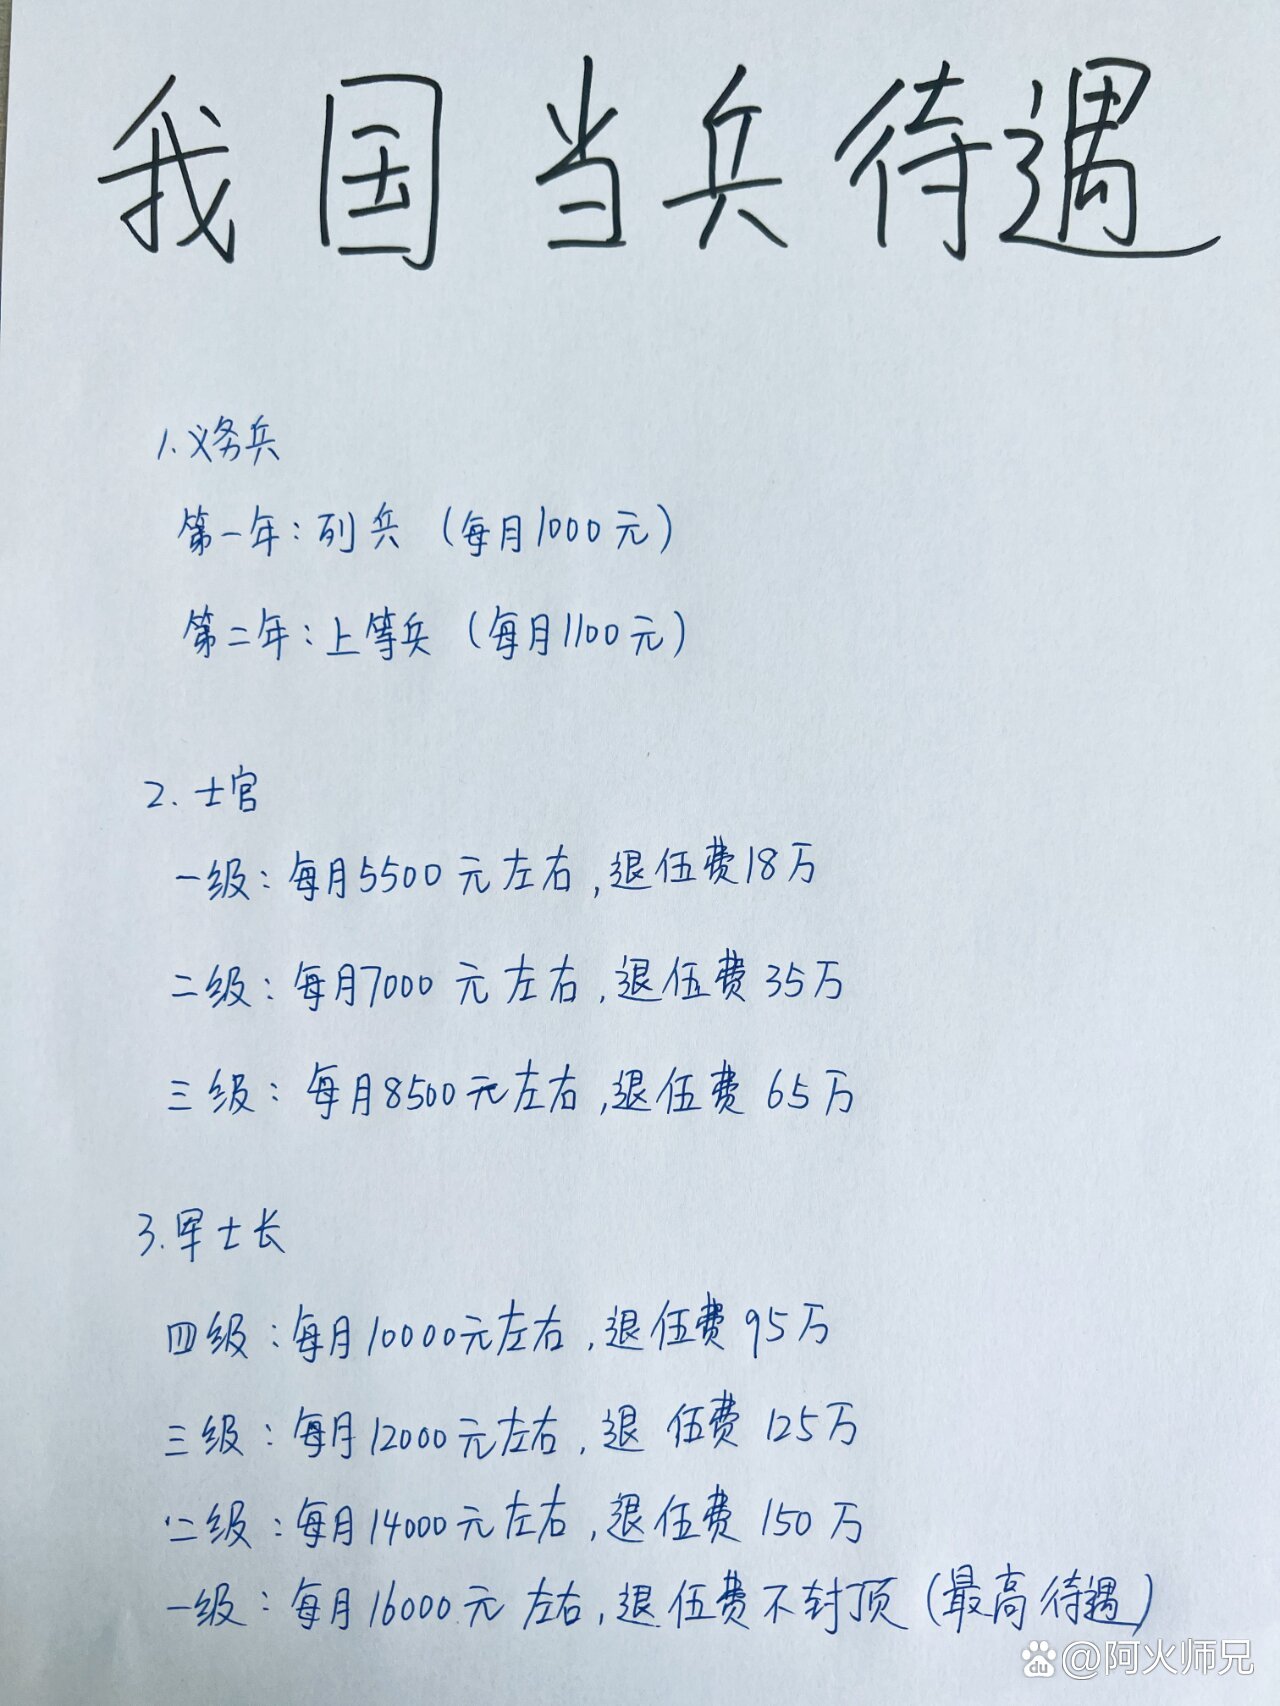 我国当兵待遇
1.义务兵
第一年:列兵(每月1000元)
第二年:上等兵(每月1100元)
2.士官
一级:每月5500元左右,退伍费18万
二级:每月7000元左右,退伍费35万
三级:每月8500元左右,退伍费65万
3.军士长
四级:每月10000元左右,退伍费95万
三级:每月12000元左右,退伍费125万
二级:每月14000元左右,退伍费150万
一级:每月16000元左右,退伍费不封顶(最高待遇)
du @阿火师兄